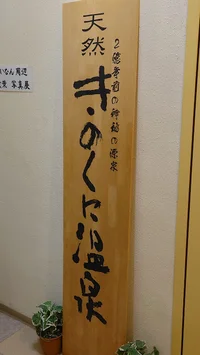 天然
2億年前の神秘の源泉
きのくに温泉
いなん周辺
写真展